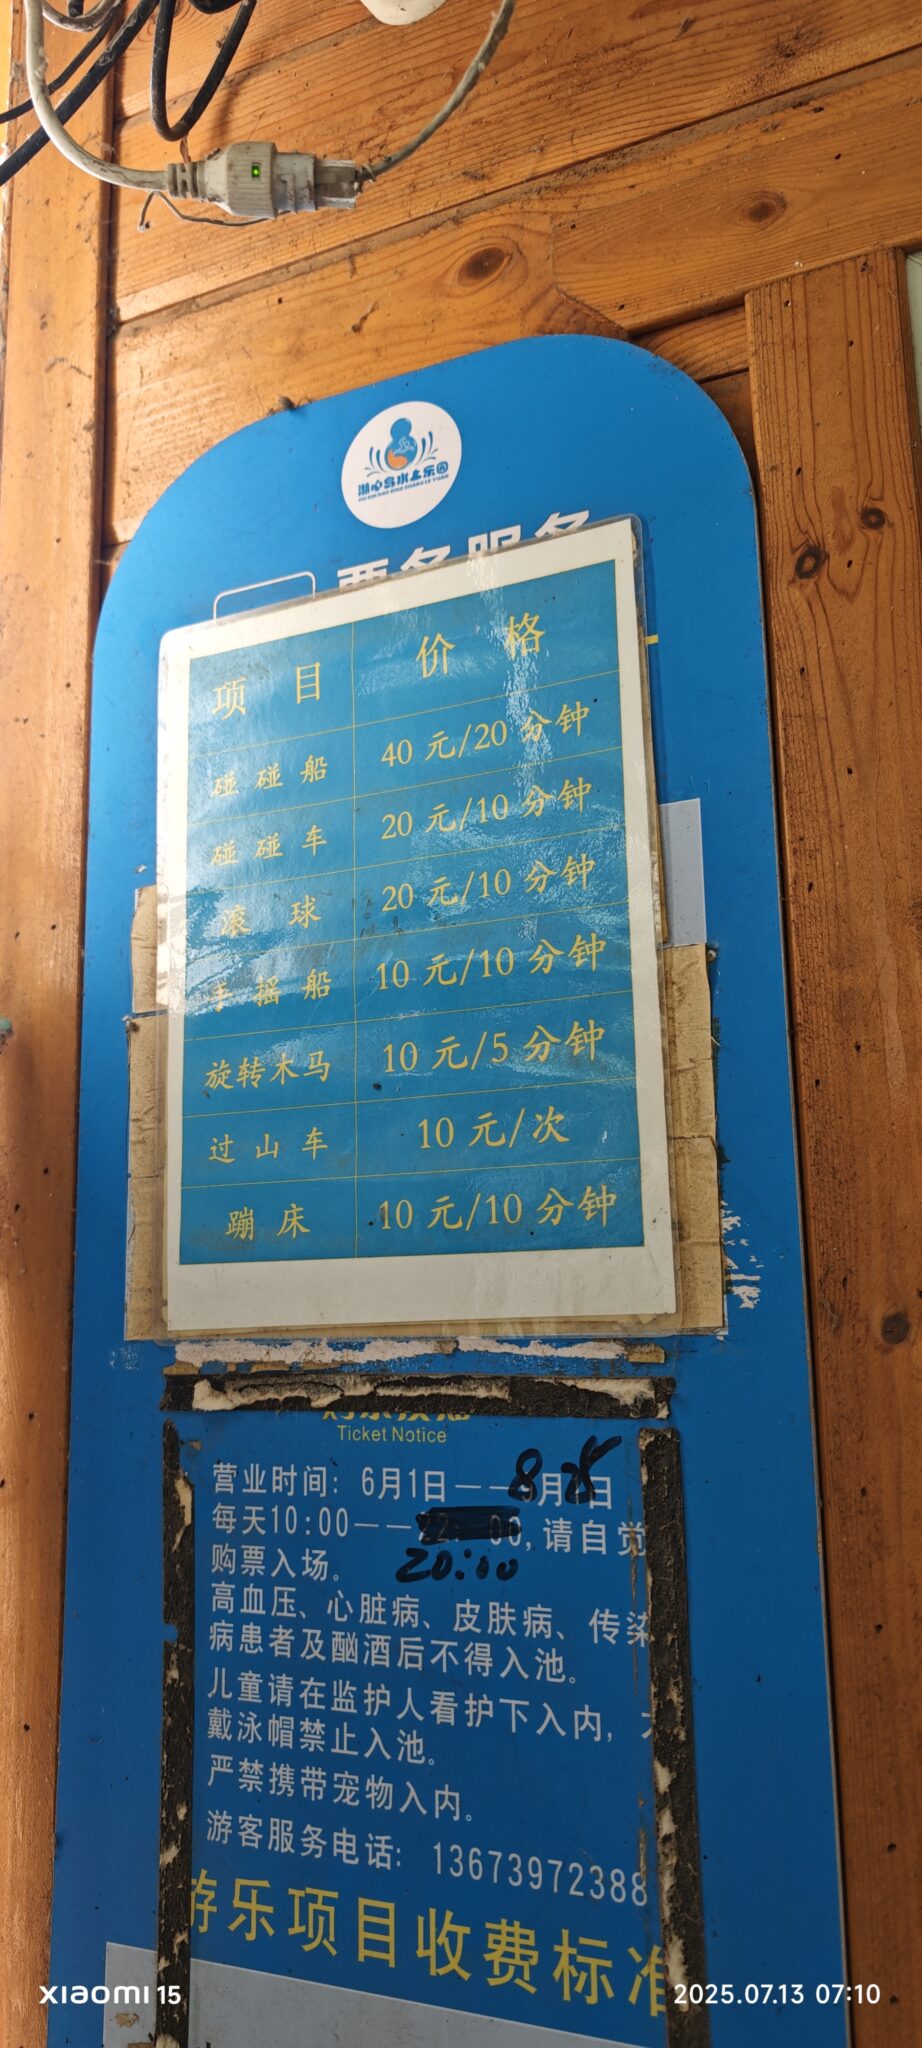 湖心岛水上乐园
HU XIN DAO SHUI SHANG LE YUAN
票务服务
项目 价格
碰碰船 40元/20分钟
碰碰车 20元/10分钟
滚球 20元/10分钟
手摇船 10元/10分钟
旋转木马 10元/5分钟
过山车 10元/次
蹦床 10元/10分钟
Ticket Notice
营业时间：6月1日——8月25日
每天10:00——20:00,请自觉
购票入场。
高血压、心脏病、皮肤病、传染
病患者及酗酒后不得入池。
儿童请在监护人看护下入内,
戴泳帽禁止入池。
严禁携带宠物入内。
游客服务电话：13673972388
游乐项目收费标准
xiaomi 15
2025.07.13 07:10